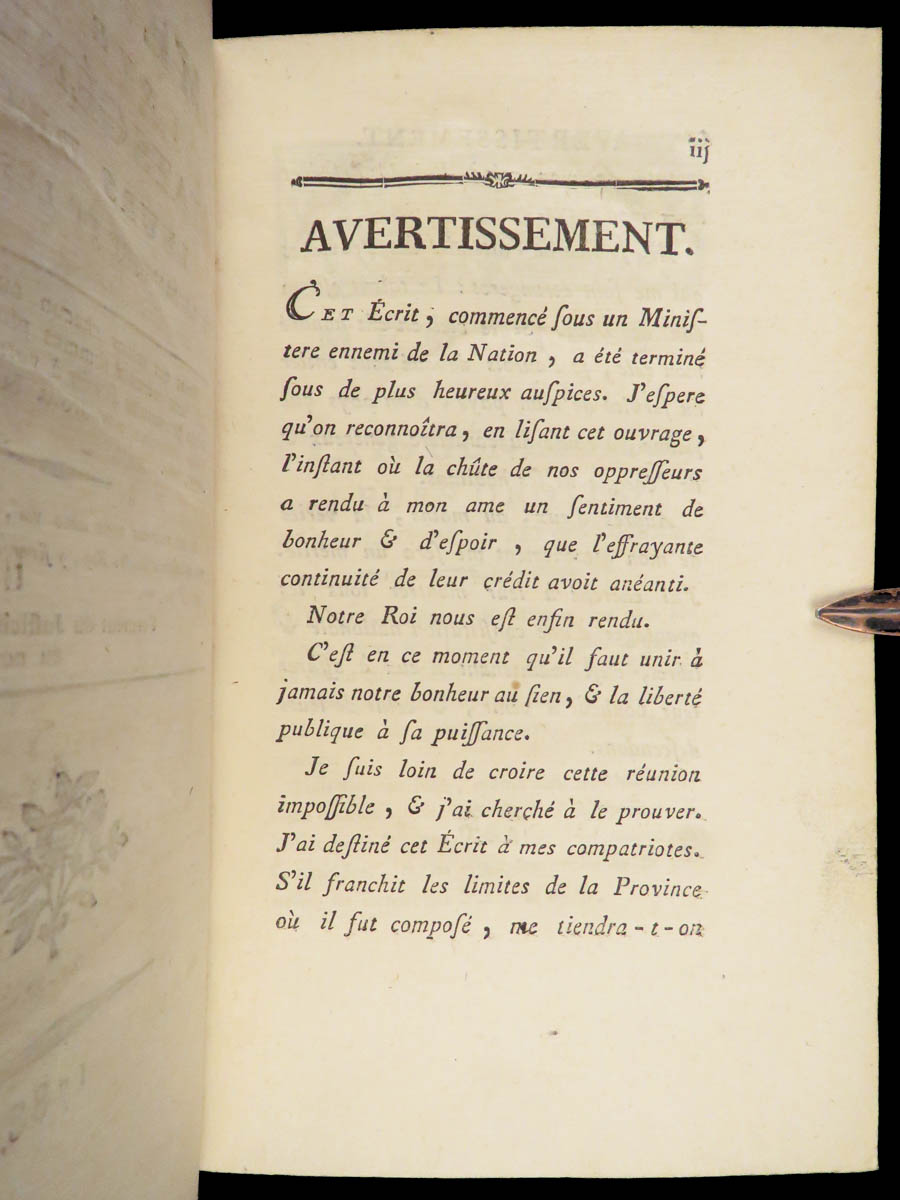 iij
AVERTISSEMENT.
CET Écrit, commencé ſous un Miniſ-
tere ennemi de la Nation, a été terminé
ſous de plus heureux auſpices. J'eſpere
qu'on reconnoîtra, en liſant cet ouvrage,
l'inſtant où la chûte de nos oppreſſeurs
a rendu à mon ame un ſentiment de
bonheur & d'eſpoir, que l'effrayante
continuité de leur crédit avoit anéanti.
Notre Roi nous eſt enfin rendu.
C'eſt en ce moment qu'il faut unir à
jamais notre bonheur au ſien, & la liberté
publique à ſa puiſſance.
Je ſuis loin de croire cette réunion
impoſſible, & j'ai cherché à le prouver.
J'ai deſtiné cet Écrit à mes compatriotes.
S'il franchit les limites de la Province
où il fut compoſé, me tiendra-t-on